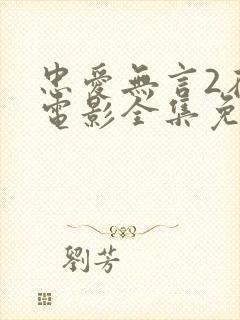 忠愛無言2
電影全集免
劉芳